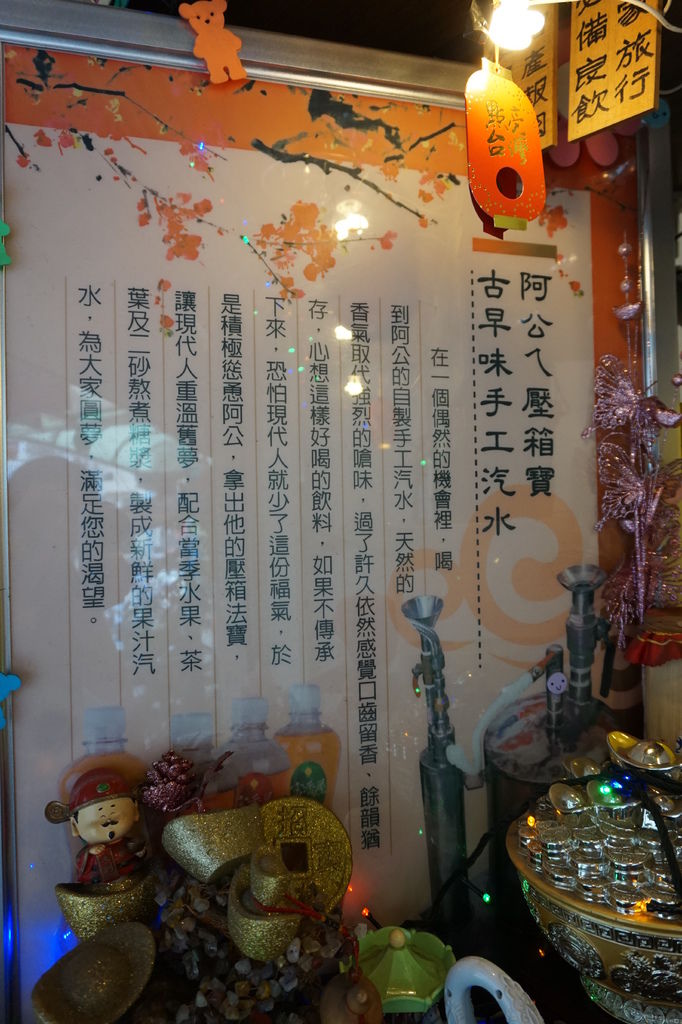 阿公ㄟ壓箱寶
古早味手工汽水
在一個偶然的機會裡，喝
到阿公的自製手工汽水，天然的
香氣取代強烈的嗆味，過了許久依然感覺口齒留香、餘韻猶
存，心想這樣好喝的飲料，如果不傳承
下來，恐怕現代人就少了這份福氣，於
是積極慫恿阿公，拿出他的壓箱法寶，
讓現代人重溫舊夢，配合當季水果、茶
葉及二砂熬煮糖漿，製成新鮮的果汁汽
水，為大家圓夢，滿足您的渴望。
點亮
台灣
家旅行
必備良飲